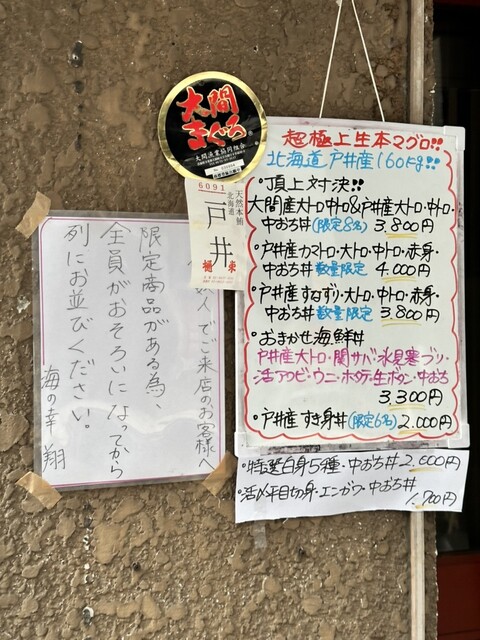 大間
まぐろ
大間漁業協同組合
6091
天然本鮪
北海道
戸井
超極上生本マグロ!!
北海道戸井産160kg!!
・頂上対決!!
大間産大トロ・中トロ&戸井産大トロ・中トロ・
中おち丼(限定8名) 3,800円
・戸井産カマトロ・大トロ・中トロ・赤身・
中おち丼 数量限定 4,000円
・戸井産すねずり・大トロ・中トロ・赤身・
中おち丼 数量限定 3,800円
・おまかせ海鮮丼
戸井産大トロ・関サバ・氷見寒ブリ・
活アワビ・ウニ・ホタテ・生ボタン・中おち
3,300円
・戸井産すき身丼(限定6名) 2,000円
・特選白身5種・中おち丼 2,600円
・活〆平目切身・エンガワ・中おち丼
1,700円
人でご来店のお客様へ
限定商品がある為、
全員がおそろいになってから
列にお並びください。
海の幸 翔